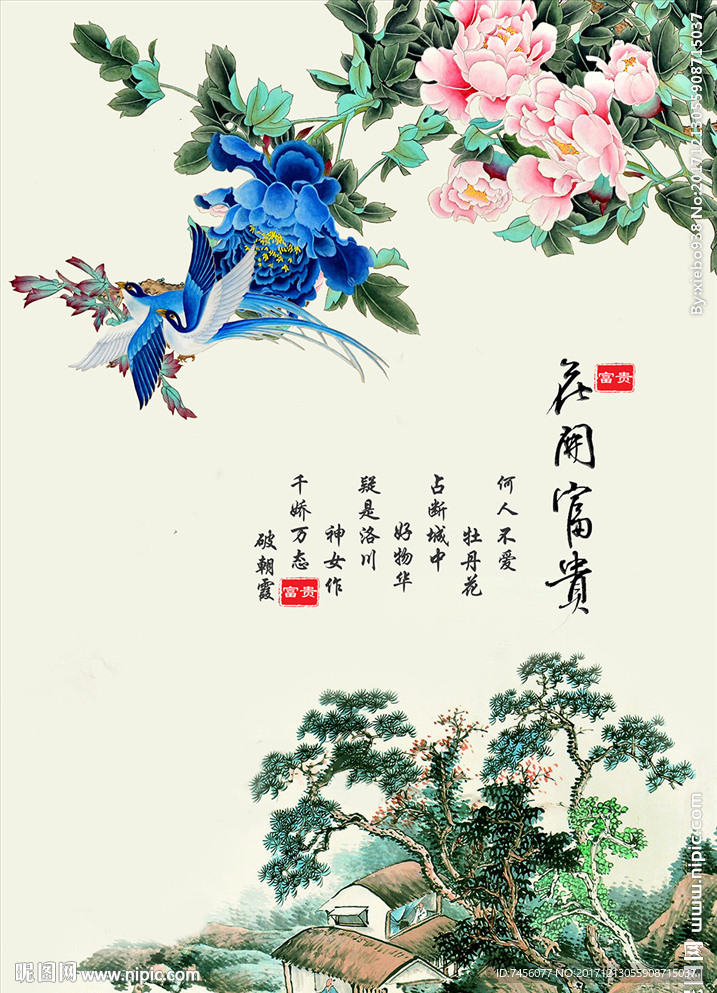 花開富貴
富贵
何人不爱
牡丹花
占断城中
好物华
疑是洛川
神女作
千娇万态
破朝霞
富贵
By:xiebo938 No:20171213055908715037
www.nipic.com
昵图网
昵图网 www.nipic.com
ID:7456077 NO:20171213055908715037